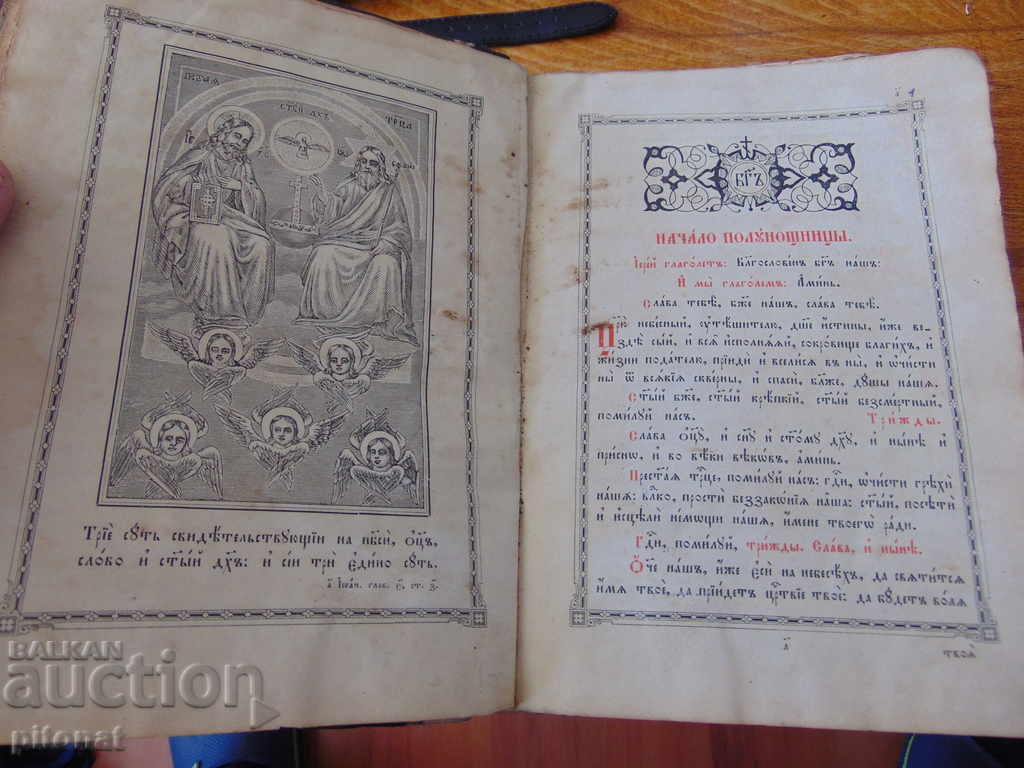 СТЫЙ ДХЪ
ТРЦА
Трїе суть свидѣтельствующїи на нб҃си, ѻц҃ъ,
слово и ст҃ый дх҃ъ: и сїи трѝ є҆ди́но суть.
БГ҃Ъ
НАЧА́ЛО ПОЛУНОЩНИЦЫ.
І҆ере́й глаго́летъ: Бл҃гослове́нъ бг҃ъ на́шъ:
И҆ мы̀ глаго́лемъ: А҆ми́нь.
Сла́ва тебѣ̀, бж҃е на́шъ, сла́ва тебѣ̀.
Цр҃ю̀ нбⷭ҇ный, ᲂу҆тѣ́шителю, дш҃е и҆́стины, и҆́же ве-
здѣ̀ сы́й, и҆ всѧ̑ и҆сполнѧ́ѧй, сокро́вище бл҃ги́хъ, и҆
жи́зни пода́телю, прїидѝ и҆ всели́сѧ въ ны̀, и҆ ѡ҆чи́сти
ны̀ ѿ всѧ́кїѧ скве́рны, и҆ сп҃сѝ, бл҃же, дꙋ́шы на́шѧ.
Ст҃ы́й бж҃е, ст҃ы́й крѣ́пкїй, ст҃ы́й безсме́ртный,
поми́лꙋй на́съ. Три́жды.
Сла́ва ѻ҆ц҃ꙋ̀, и҆ сн҃ꙋ и҆ ст҃о́мꙋ дх҃ꙋ, и҆ ны́нѣ и҆
при́снѡ, и҆ во вѣ́ки вѣкѡ́въ, а҆ми́нь.
Прест҃а́ѧ трⷪ҇це, поми́лꙋй на́съ: гдⷭ҇и, ѡ҆чи́сти грѣхѝ
на́шѧ: влⷣко, простѝ беззакѡ́нїѧ на̑ша: ст҃ы́й, посѣтѝ
и҆ и҆сцѣлѝ не́мѡщи на́шѧ, и҆́мене твоегѡ̀ ра́ди.
Гдⷭ҇и, поми́лꙋй, три́жды. Сла́ва, и҆ ны́нѣ.
Ѻ҆́ч҃е на́шъ, и҆́же є҆сѝ на небесѣ́хъ, да свѧти́тсѧ
и҆́мѧ твоѐ, да прїи́детъ црⷭ҇твїе твоѐ: да бꙋ́детъ во́лѧ
твоѧ̀
BALKAN
auction
pitonat